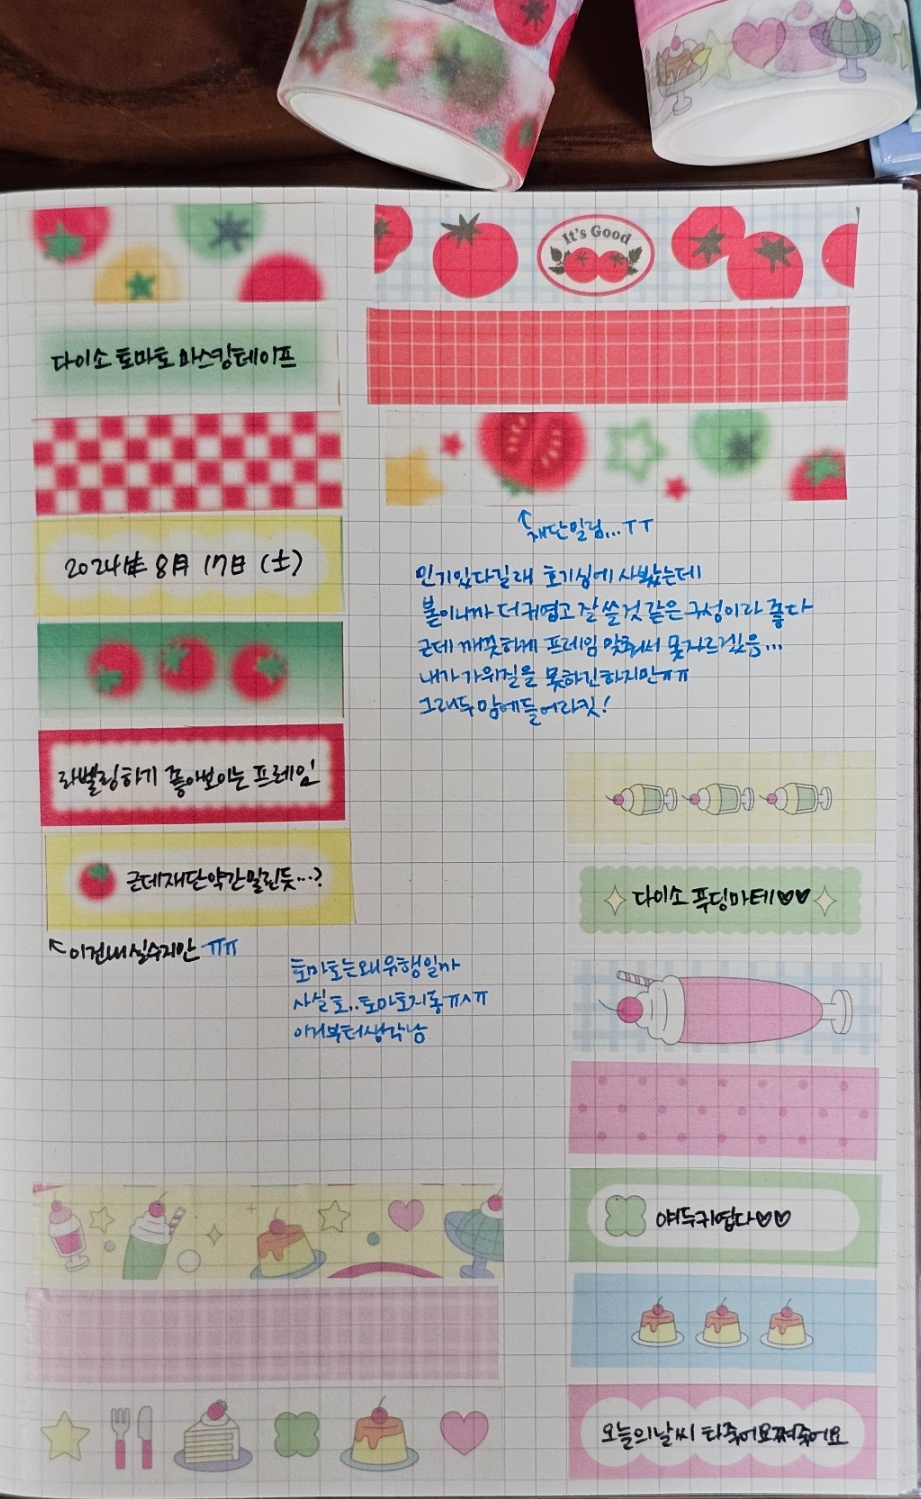 It's Good
다이소 토마토 마스킹테이프
2024年 8月 17日 (土)
라벨링하기 좋아보이는 프레임
근데재단약간밀린듯...?
↖이건내실수지만 ㅠㅠ
↖재단밀림...ㅜㅜ
인기있다길래 호기심에 사봤는데
붙이니까 더 귀엽고 잘 쓸것 같은 구성이라 좋다
근데 깨끗하게 프레임 맞춰서 못자르겠음...
내가 가위질을 못하긴하지만ㅠㅠ
그래두 맘에들어라킷!
토마토는왜유행일까
사실 토..토마토지롱ㅠㅅㅠ
이거부터생각남
다이소 푸딩마테♡♡
얘두귀엽다♡♡
오늘의날씨 타죽어요쪄죽어요